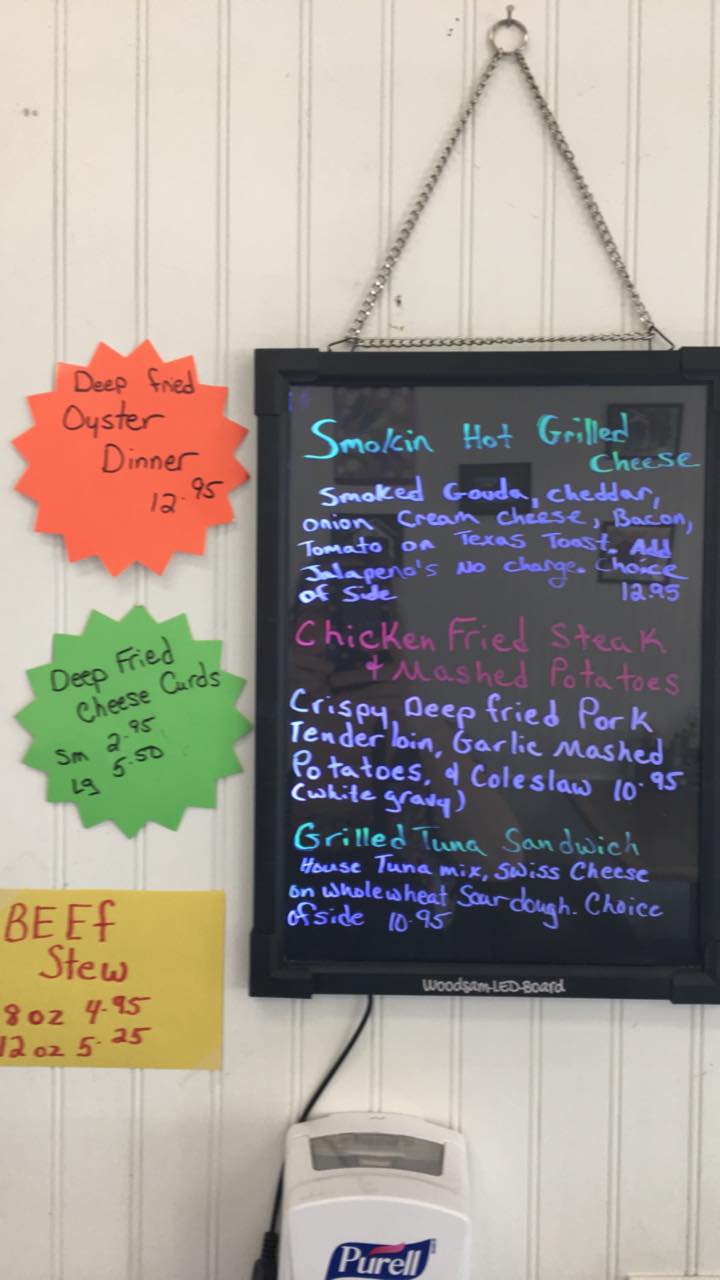 Deep fried
Oyster
Dinner
12.95
Deep Fried
Cheese Curds
Sm 2.95
Lg 5.50
BEEf
Stew
8 oz 4.95
12 oz 5.25
Smokin Hot Grilled
Cheese
Smoked Gouda, cheddar,
onion Cream cheese, Bacon,
Tomato on Texas Toast. Add
Jalapeno's No charge. Choice
of Side 12.95
Chicken Fried Steak
+ Mashed Potatoes
Crispy Deep fried Pork
Tenderloin, Garlic Mashed
Potatoes, & Coleslaw 10.95
(white gravy)
Grilled Tuna Sandwich
House Tuna mix, Swiss Cheese
on whole wheat Sourdough. Choice
of side 10.95
Woodsam-LED-Board
Purell